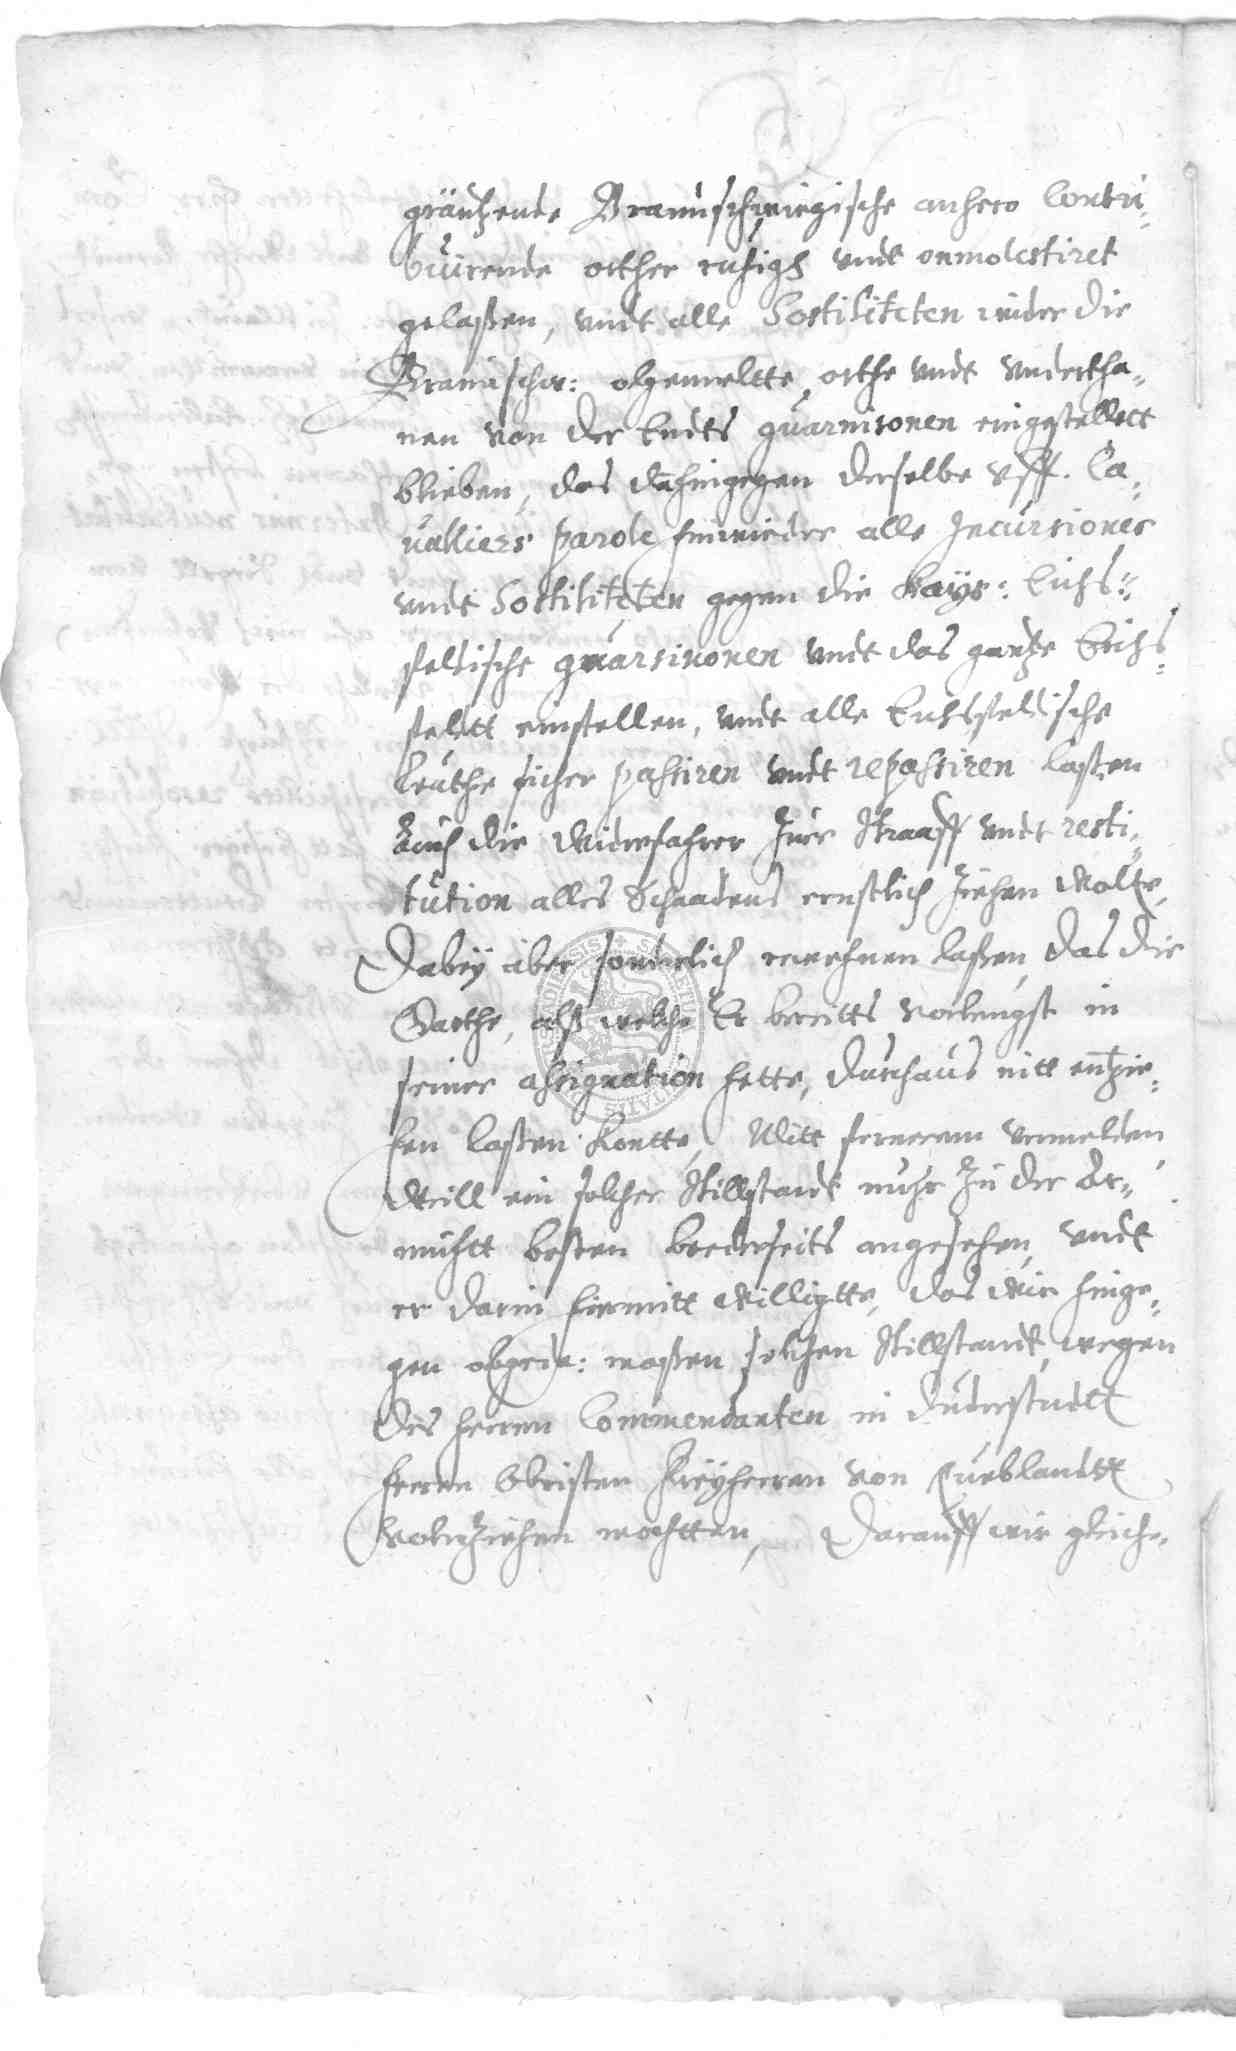 gräntzende Braunschweigische anhero Contri-
buirende orther ruhigh vndt onmolestiret
gelaßen, vndt alle Hostiliteten wider die
Braunschw: obgemeltte orthe vndt vndertha-
nen von der Endts guarnisonen eingestellett
blieben, das dahingegen derselbe vff Ca-
valliers parole hinwieder alle Incursiones
vndt Hostiliteten gegen die Kayß: Eichs-
feldische guarnisonen vndt das gantze Eichs-
feldtt einstellen, vndt alle Eichsfeldische
leuthe sicher passiren vndt repassiren laßen
Auch die Widerfahrer zur straaff vndt resti-
tution alles Schaadens ernstlich ziehen wolte,
Dabey aber sonderlich erwehnen laßen, das die
Garthe, alß welche Er bereitts vorlengst in
seiner assignation hette, durchaus nitt entzie-
hen laßen kontte, Mitt fernerem vermelden
Weill ein solcher Stillstandt nuhr zu der Ar-
muhtt besten beederseits angesehen, vndt
er darin hiermitt willigtte, das wir hinge-
gen obged: maßen solchen Stillstandt, wegen
des herren Commendanten in Duderstadtt
herren Obristen Freyherren von
Volnziehen mochtten, Darauff wir gleich-